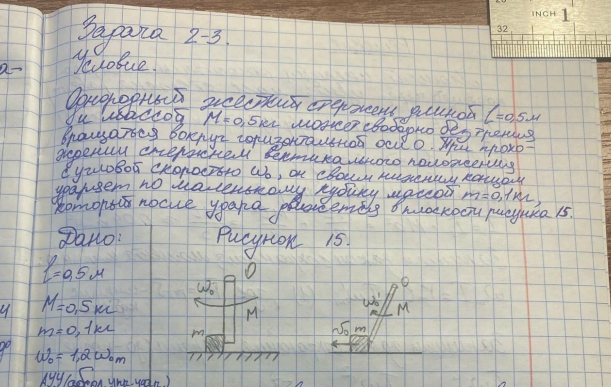 Задача 2-3.
Условие.
Однородный жесткий стержень длиной l=0,5м
и массой M=0,5кг может свободно без трения
вращаться вокруг горизонтальной оси О. При прохо-
ждении стержнем вертикального положения
с угловой скоростью ω₀, он своим нижним концом
ударяет по маленькому кубику массой m=0,1кг,
который после удара движется в плоскости рисунка 15.
Дано: Рисунок 15.
l=0,5м
M=0,5кг
m=0,1кг
ω₀=1,2ω₀m
АУУ(абсол.упр.удар.)
ω₀ O M m
O ω₀' M v₀ m
INCH 1
32
а-